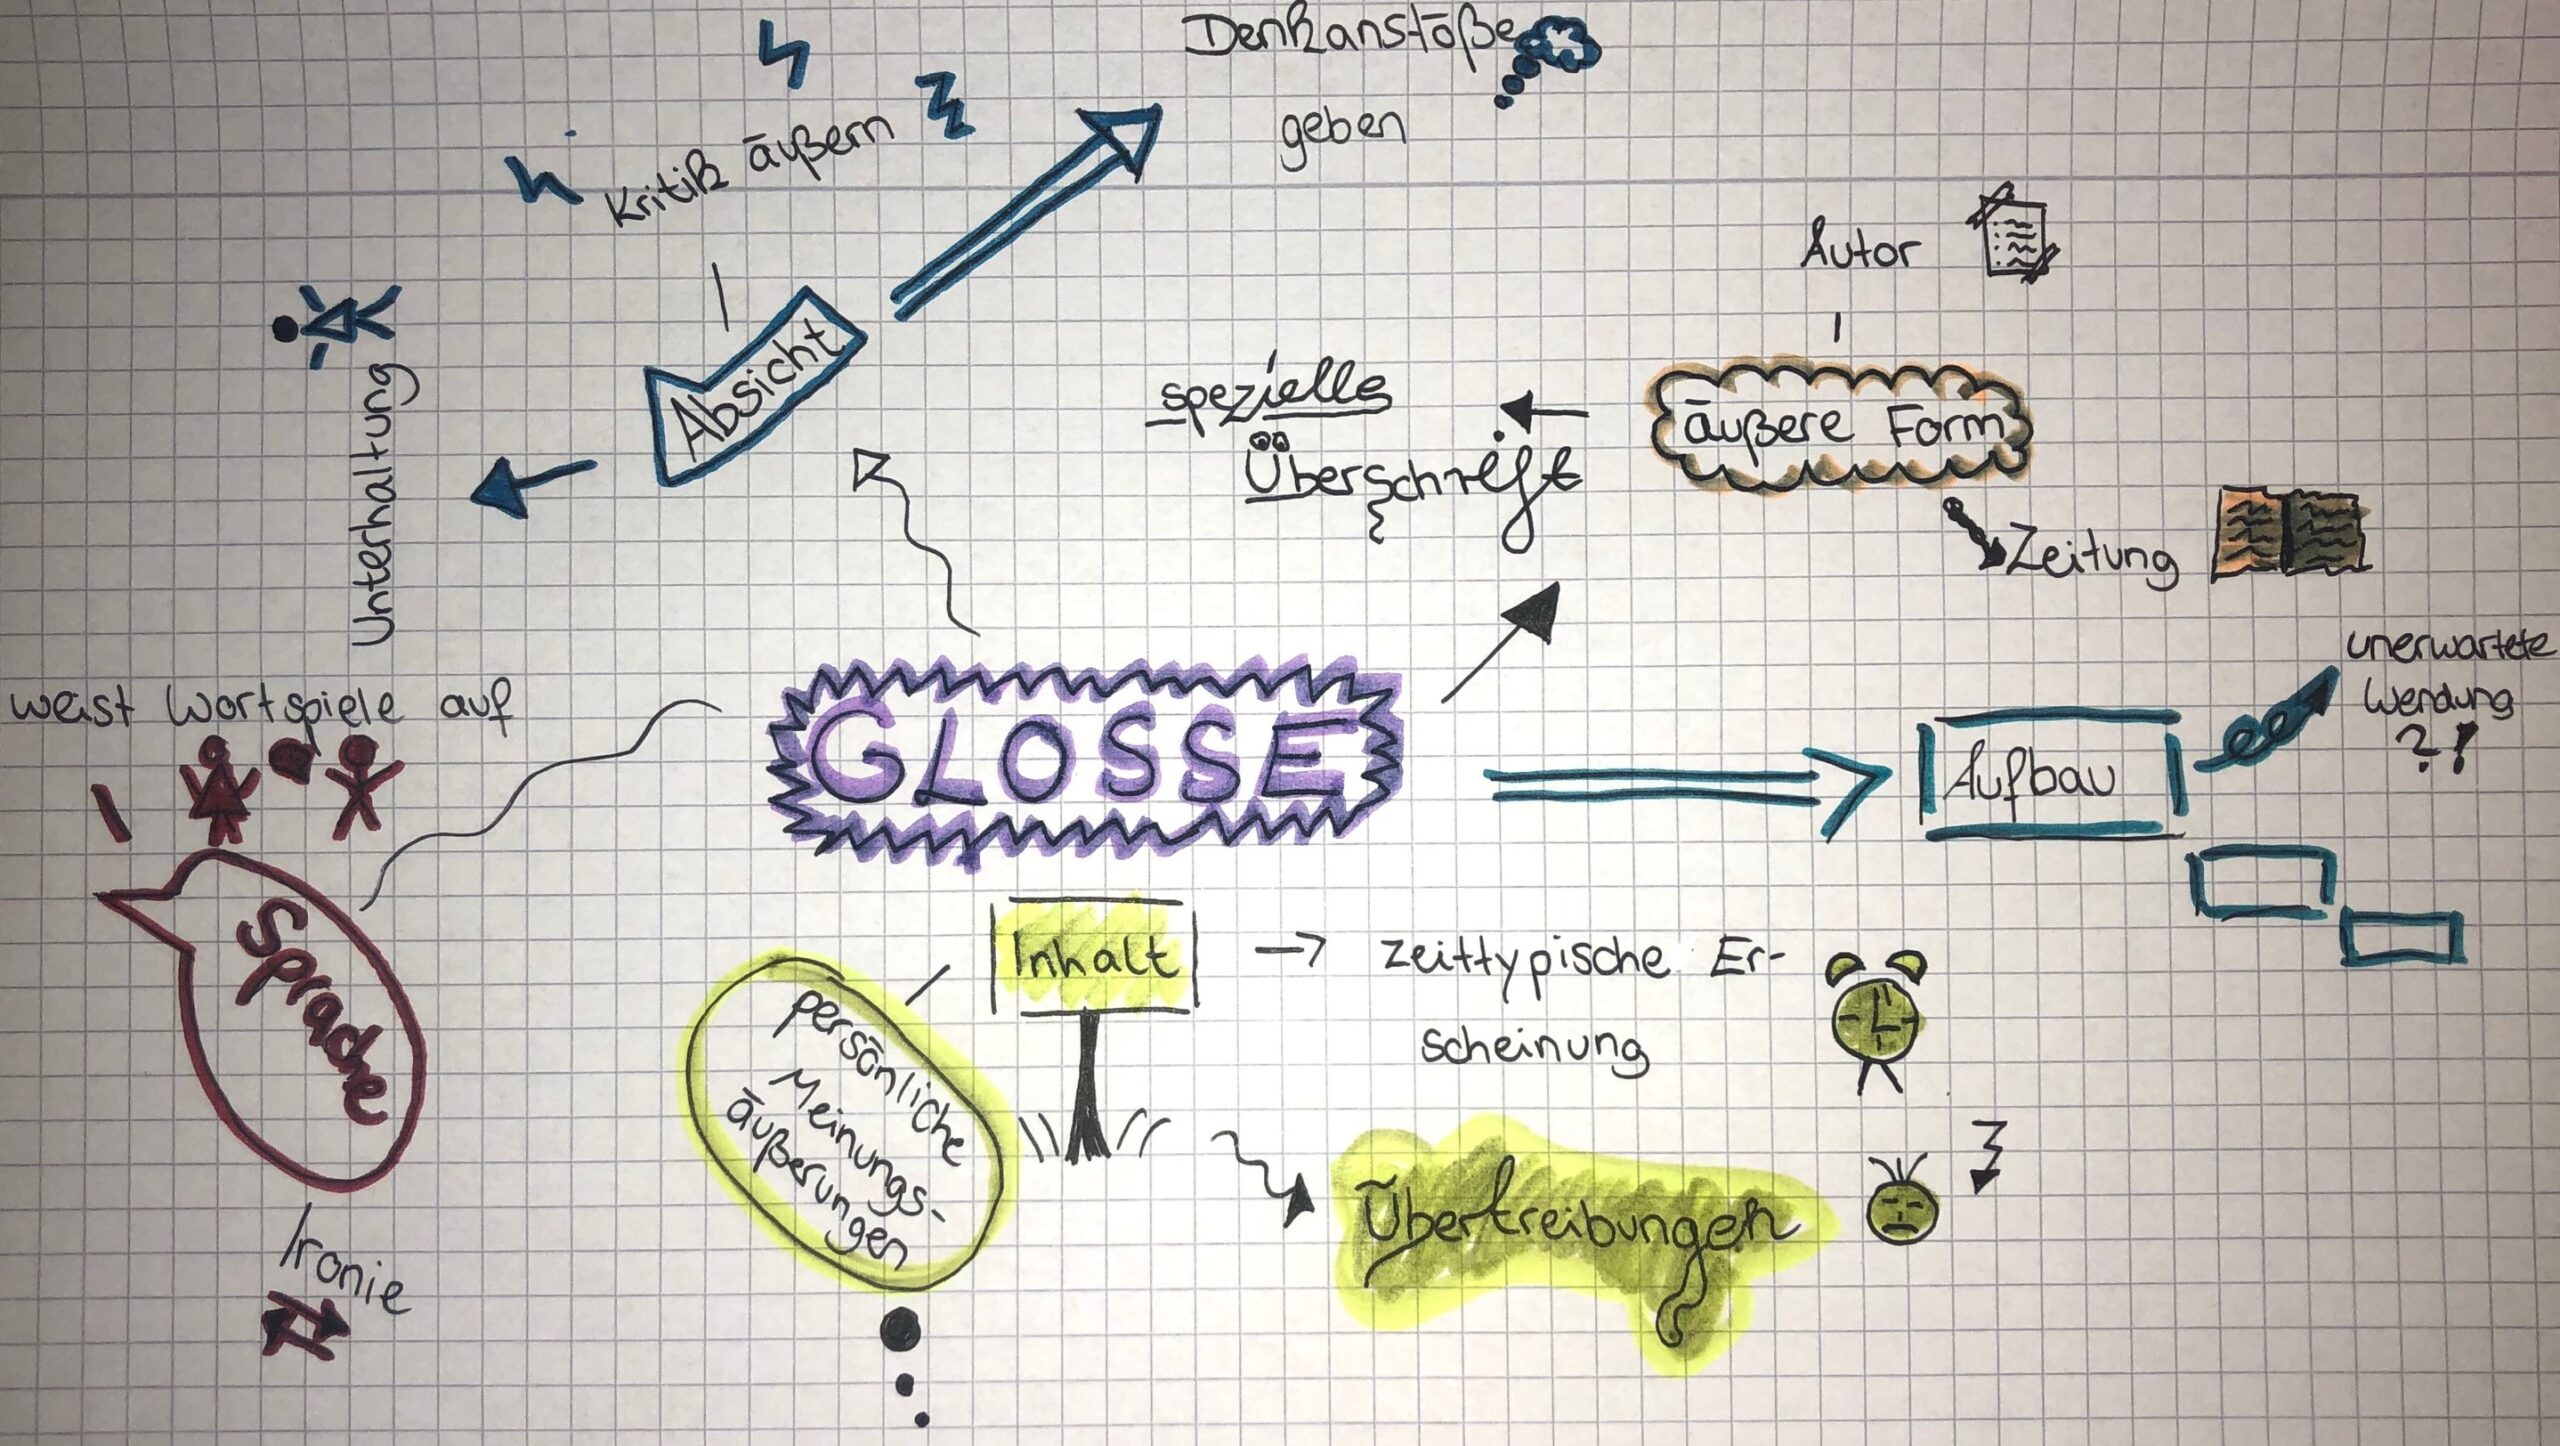 Denkanstöße
geben
Kritik äußern
Absicht
Unterhaltung
Autor
äußere Form
spezielle
Überschrift
Zeitung
GLOSSE
Aufbau
unerwartete
Wendung
?!
weist Wortspiele auf
Sprache
Ironie
Inhalt
zeittypische Er-
scheinung
persönliche
Meinungs-
äußerungen
Übertreibungen